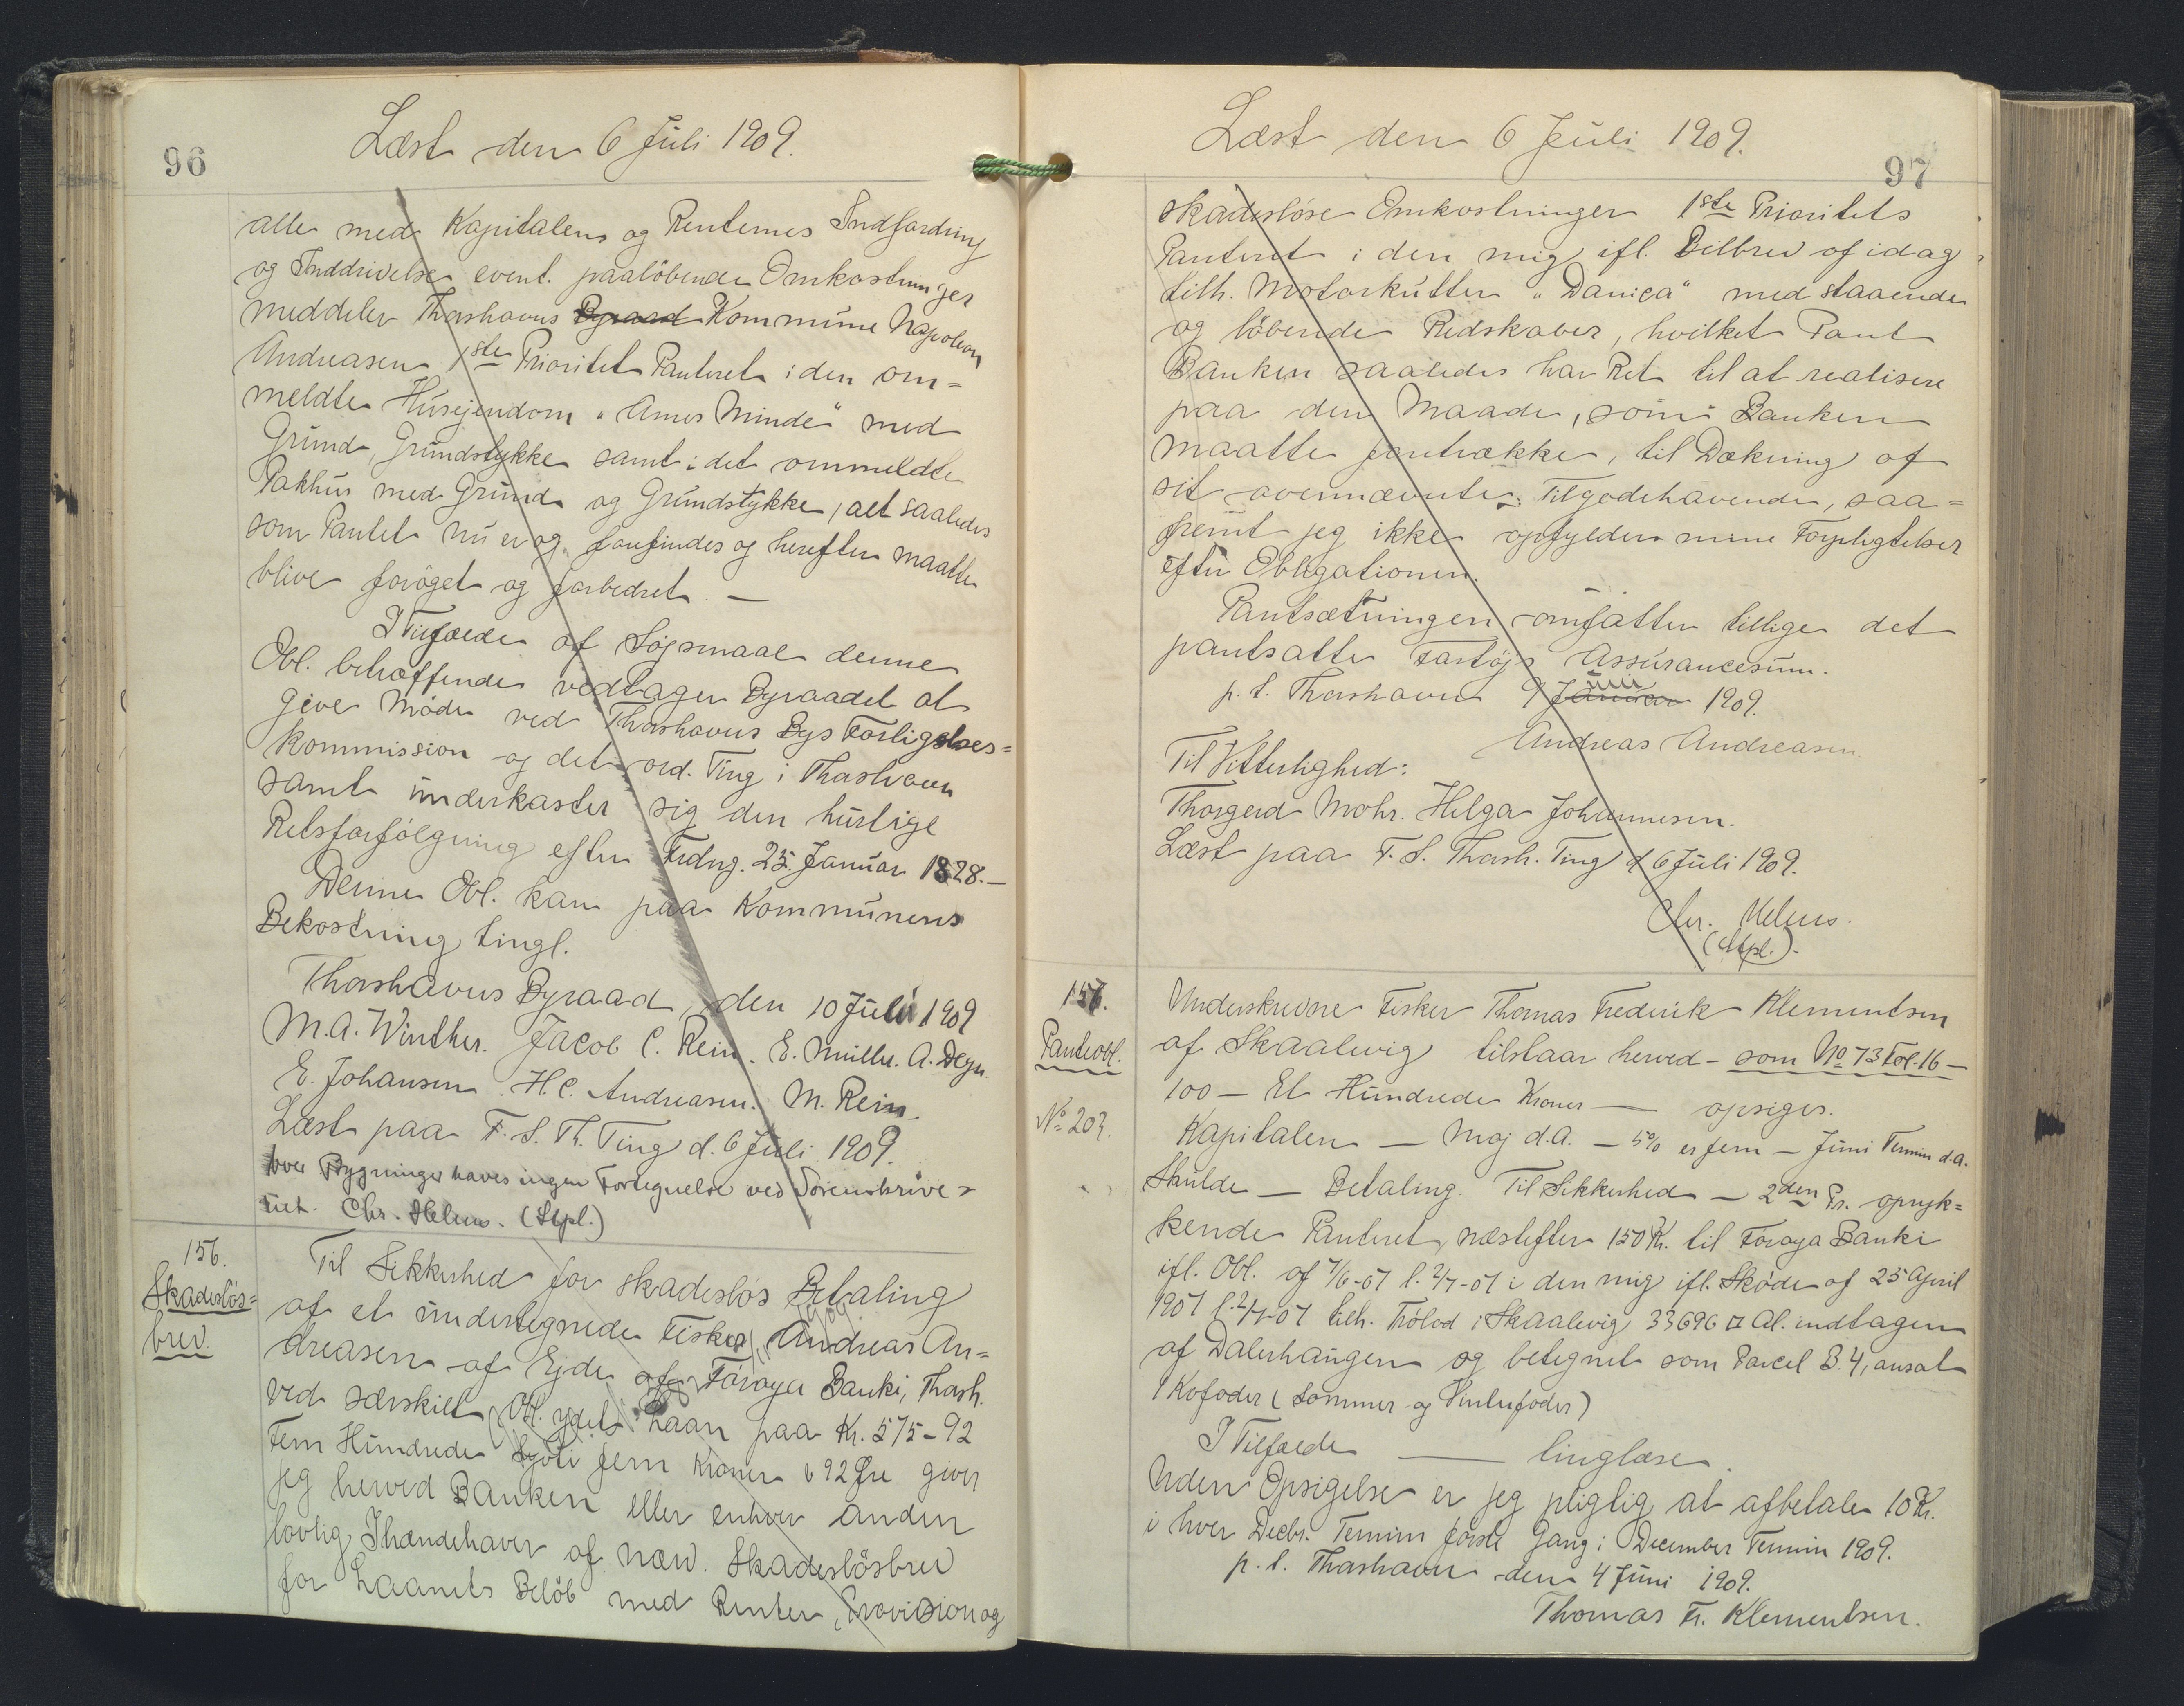 96
Læst den 6 Juli 1909.
alle med Kapitalens og Renternes Indfordring
og Inddrivelse event. paaløbende Omkostninger
meddeler Thorshavns Byraad Kommune Napoleon
Andreasen 1ste Prioritet Panteret i den om=
meldte Husejendom "Annes Minde" med
Grund, Grundstykke samt i det ommeldte
Pakhus med Grund og Grundstykke, alt saaledes
som Pantet nu er og forefindes og herefter maatte
blive forøget og forbedret. —
I Tilfælde af Søgsmaal denne
Obl. betræffende vedtager Byraadet at
give Møde ved Thorshavns Bys Forligelses=
kommission og det ord. Ting i Thorshavn
samt underkaster sig den hurtige
Retsforfølgning efter Frdng. 25. Januar 1828.—
Denne Obl. kan paa Kommunens
Bekostning tingl.
Thorshavns Byraad, den 10 Juli 1909
M. A. Winther. Jacob C. Rein. E. Müller. A. Degn.
E. Johansen. H. C. Andreasen. M. Rein.
Læst paa F. S. Th. Ting d. 6 Juli 1909.
Over Bygninger haves ingen Fortegnelse ved Sorenskrive=
riet. Chr. Helms. (Stpl.)
156.
Skadesløs=
brev.
Til Sikkerhed for skadesløs Betaling
af et undertegnede Fisker Andreas An=
dreasen af Ejde af Føroya Banki, Thorsh.
ved særskilt Obl. ydet Laan paa Kr. 575-92
Fem Hundrede Syvti fem Kroner & 92 Øre giver
jeg herved Banken eller enhver anden
lovlig Ihændehaver af nærv. Skadesløsbrev
for Laanets Beløb med Renter, Provision og
Læst den 6 Juli 1909.
97
skadesløse Omkostninger 1ste Prioritets
Panteret i den mig ifl. Bilbrev af idag
tilh. Motorkutter "Danica" med staaende
og løbende Redskaber, hvilket Pant
Banken saaledes har Ret til at realisere
paa den Maade, som Banken
maatte foretrække, til Dækning af
sit ovennævnte Tilgodehavende, saa=
fremt jeg ikke opfylder mine Forpligtelser
efter Obligationen.
Pantsætningen omfatter tillige det
pantsatte Fartøjs Assurancesum.
p. t. Thorshavn 9 Januar Juni 1909.
Andreas Andreasen.
Til Vitterlighed:
Thorgerd Mohr. Helga Johannesen.
Læst paa F. S. Thorsh. Ting d 6 Juli 1909.
Chr. Helms.
(Stpl.).
157.
Panteobl.
No 203.
Underskrevne Fisker Thomas Frederik Klementsen
af Skaalevig tilstaar herved – som No 73 Fol. 16 —
100 — Et Hundrede Kroner — opsiges.
Kapitalen — Maj d. A. — 5% er fem — Juni Termin d. A.
Skulde — Betaling. Til Sikkerhed — 2den Pr. opryk=
kende Panteret, næstefter 150 Kr. til Føroya Banki
ifl. Obl. af 7/6-07 l. 2/7-07 i den mig ifl. Skøde af 25 April
1907 l. 2/7-07 tilh. Trølod i Skaalevig 33696 □ Al. indtagen
af Dalerhaugen og betegnet som Parcel B. 4, ansat
1 Kofoder (Sommer og Vinterfoder)
I Tilfælde — tinglæse.
Uden Opsigelse er jeg pligtig at afbetale 10 Kr.
i hver Decbr. Termin første Gang i December Termin 1909.
p. t. Thorshavn den 4 Juni 1909.
Thomas Fr. Klementsen.